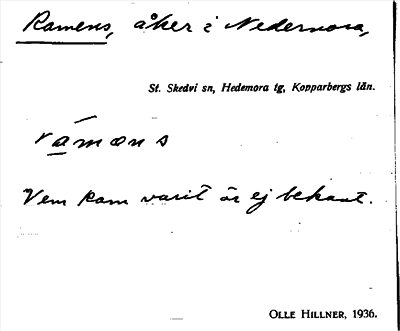 Ramens, åker i Nedernora,
St. Skedvi sn, Hedemora tg, Kopparbergs län.
ramæns
Vem Ram varit är ej bekant.
OLLE HILLNER, 1936.